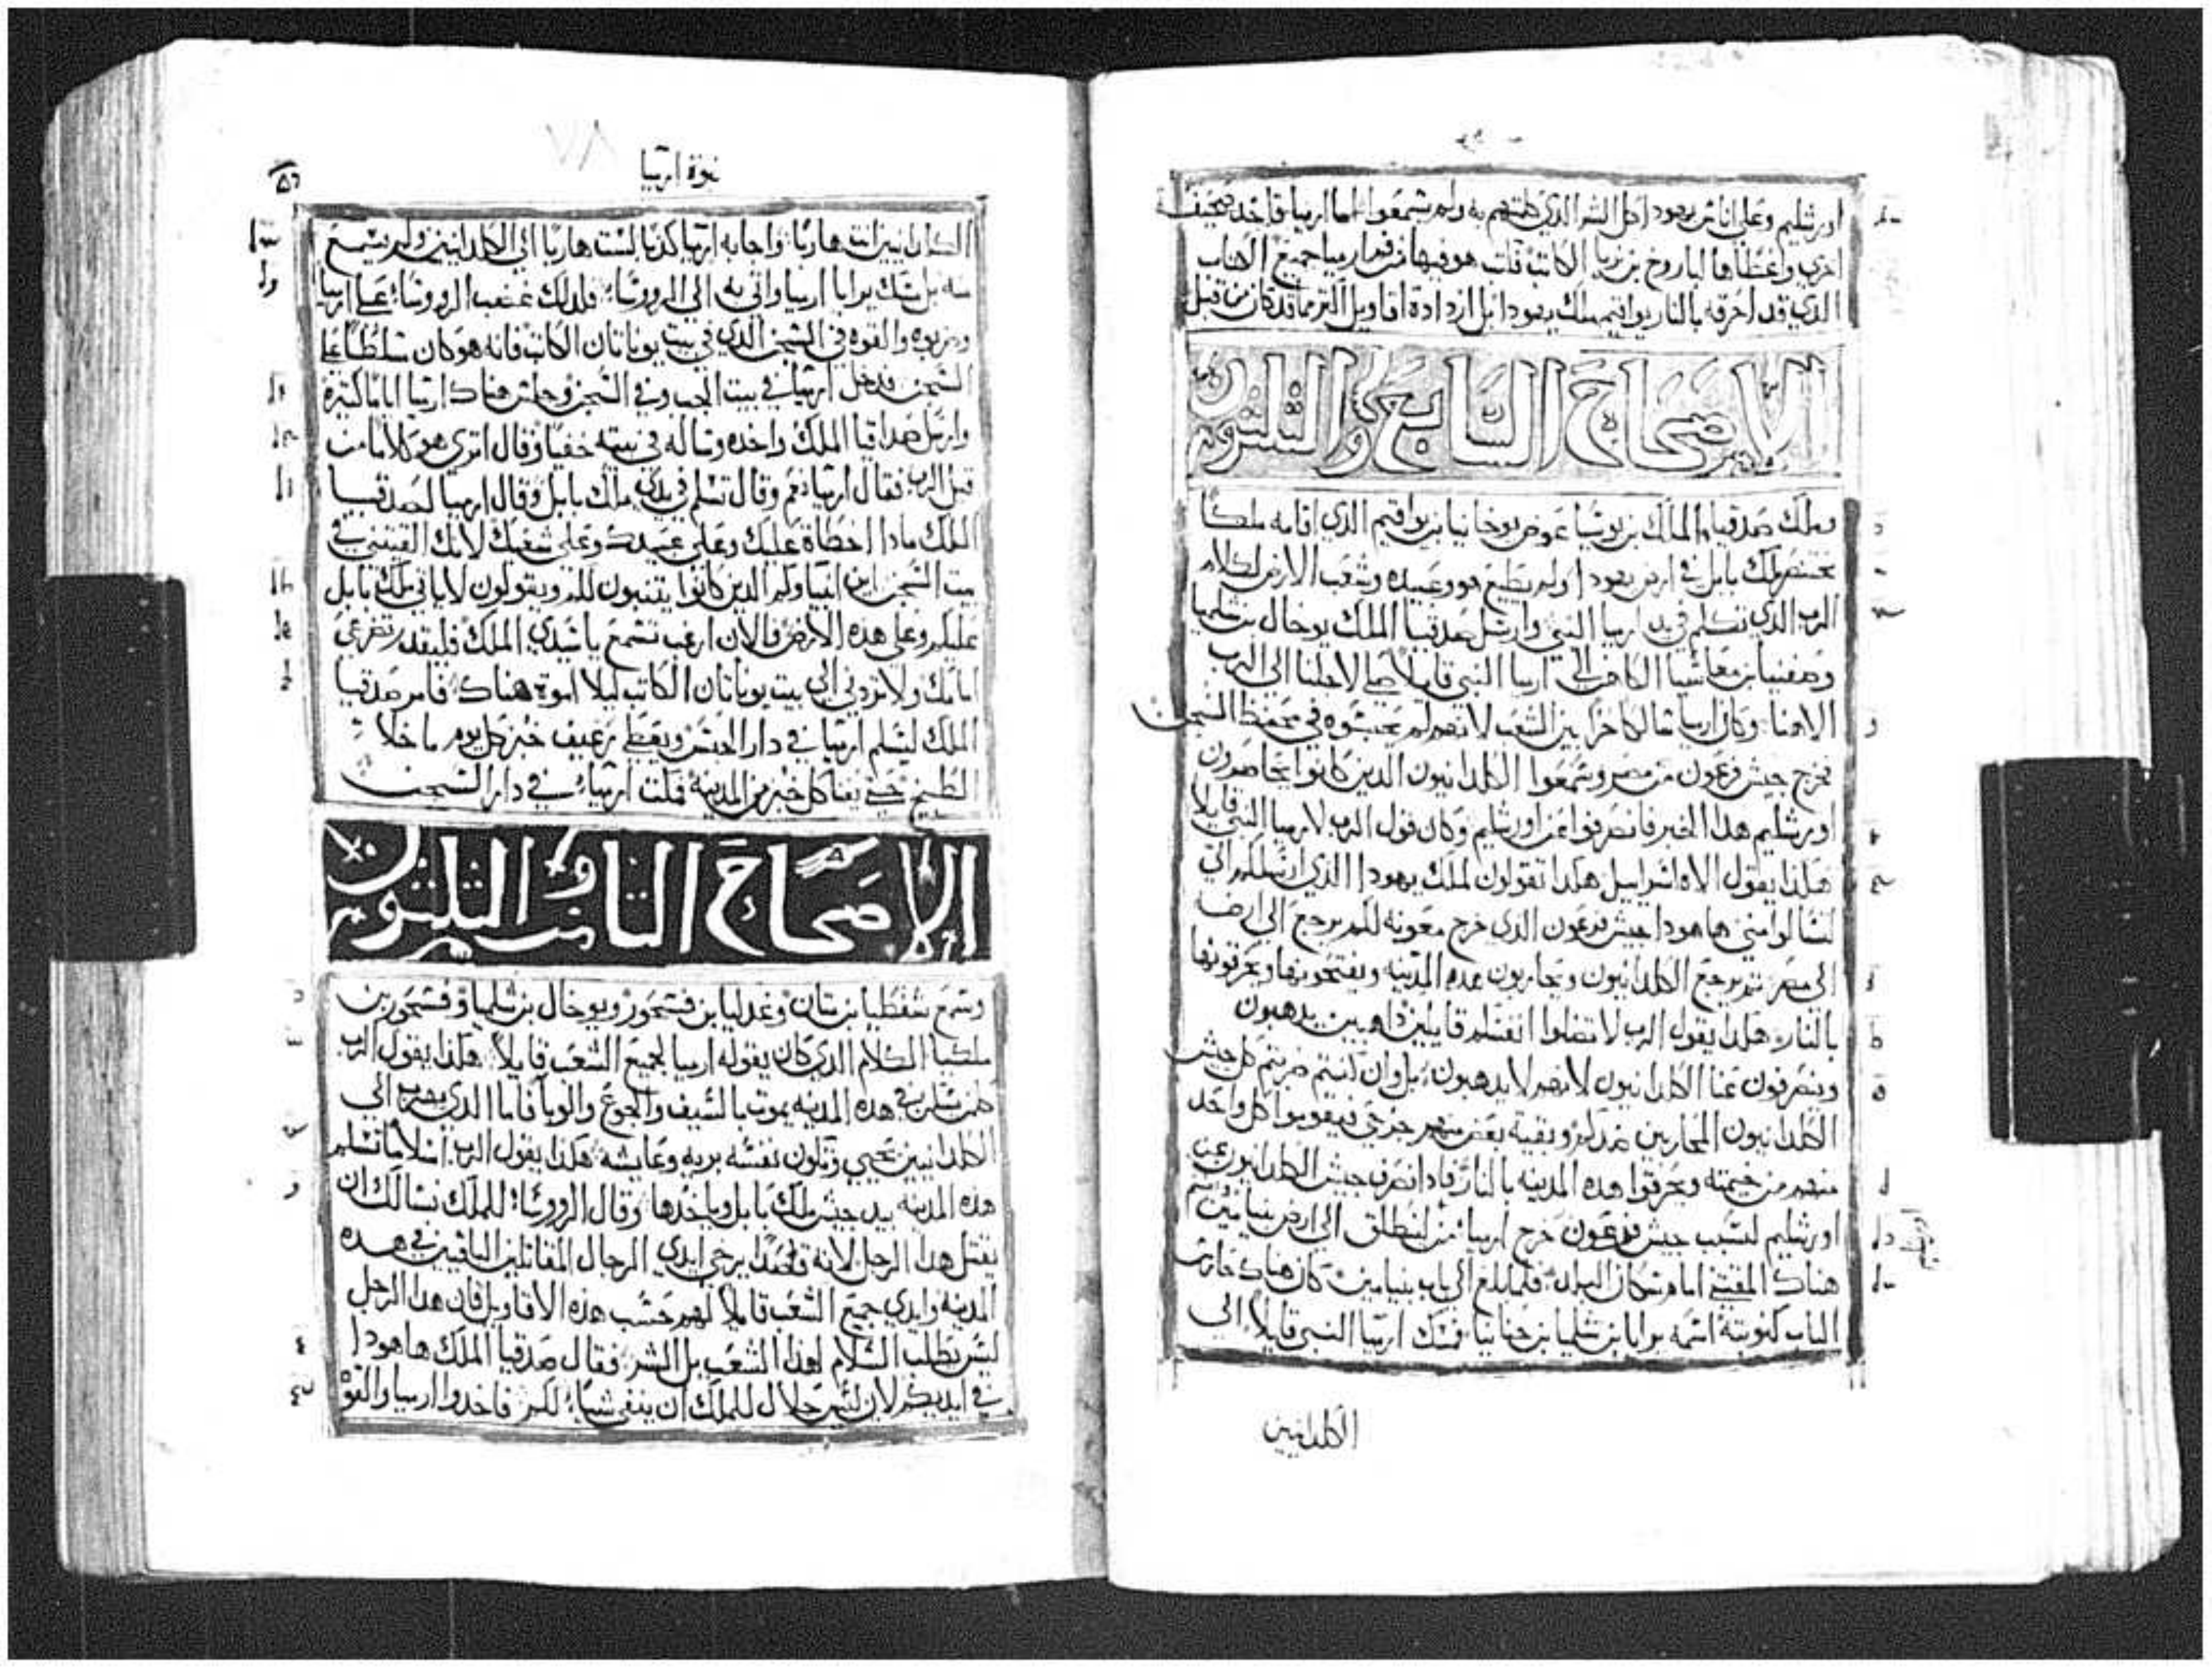 اورشليم وعلى اناس يهودا كل الشر الذي كلمتهم به ولم يسمعوا اما ارميا فاخذ صحيفة
اخري واعطاها لباروخ بن نريا الكاتب فكتب هو فيها من فم ارميا جميع الكتاب
الذي قد احرقه بالنار يواقيم ملك يهودا بل ازدادة اقاويل اكثر مما قد كان من قبل
الاصحاح السابع والثلثون
وملك صدقيا الملك بن يوشيا عوض يوخانيا بن يواقيم الذي اقامه ملكا
بختنصر ملك بابل في ارض يهودا ولم يطيع هو وعبيده وشعب الارض لكلام
الرب الذي تكلم في يد ارميا النبي وارسل صدقيا الملك يوخال بن شلميا
وصفنيا بن معاشيا الكاهن الى ارميا النبي قايلا صلي لاجلنا الى الرب
الاهنا وكان ارميا سالكا حرا بين الشعب لانهم لم يحبسوه في محفظ السجن
فخرج جيش فرعون من مصر وسمعوا الكلدانيون الدين كانوا يحاصرون
اورشليم هدا الخبر فانصرفوا عن اورشليم وكان قول الرب لارميا النبي قايلا
هكذا يقول الاه اسراييل هكدا تقولون لملك يهودا الذي ارسلكم الي
لتسالوا مني ها هودا جيش فرعون الذي خرج معونه لكم يرجع الى ارضه
الى مصر ثم يرجع الكلدانيون ويحاربون هده المدينه ويفتحونها ويحرقونها
بالنار هكدا يقول الرب لا تضلوا انفسكم قايلين داهبين يدهبون
وينصرفون عنا الكلدانيون لانهم لا يدهبون بل وان كنتم ضربتم كل جيش
الكلدانيون المحاربين ضدكم وبقية بعض منهم جرحى فيقوموا كل واحد
منهم من خيمته ويحرقوا هده المدينه بالنار فادا انصرف جيش الكلدانيون عن
اورشليم لسبب جيش فرعون خرج ارميا من لينطلق الى ارض بنيامين
هناك المقتني امام سكان البلد فلما بلغ الى باب بنيامين كان هناك حارس
الباب كنوبته اسمه يرايا بن شلميا بن حنانيا فمسك ارميا النبي قايلا الى
الكلدانيين
نبوة ارميا
الكلدانيين انت هاربا واجابه ارميا كدبا لست هاربا الى الكلدانيين ولم يسمع
منه بل مسك يرايا ارميا واتى به الى الرووسا فلدلك غضب الرووسا على ارميا
وضربوه والقوه في السجن الدي في بيت يوناتان الكاتب فانه هو كان سلطا على
السجن فدخل ارميا في بيت الجب وفي السجن وجلس هناك ارميا اياما كثيرة
وارسل صدقيا الملك واخده وساله في بيته خفيا وقال اترى هو كلاما من
قبل الرب فقال ارميا نعم وقال تسلم في يدي ملك بابل وقال ارميا لصدقيا
الملك مادا اخطاة عليك وعلى عبيدك وعلى شعبك لانك القيتني في
بيت السجن اين انبياوكم الدين كانوا يتنبون لكم ويقولون لا ياتي ملك بابل
عليكم وعلى هده الارض فالان ارغب تسمع ياسيدي الملك فليقدر تضرعي
امامك ولا تردني الى بيت يوناتان الكاتب ليلا اموة هناك فامر صدقيا
الملك ليسلم ارميا في دار الحبس ويعطى رغيف خبز كل يوم ما خلا
الطبيخ حتى يفنا كل خبز من المدينة فمكث ارميا في دار السجن
الاصحاح الثامن والثلثون
وسمع شفطيا بن متان وغدليا بن فشحور ويوخال بن شلميا وفشحور بن
ملكيا الكلام الدي كان يقوله ارميا لجميع الشعب قايلا هكدا يقول الرب
كلمن يسكن في هده المدينه يموت بالسيف والجوع والوبا فاما الدي يهرب الى
الكلدانيين يحيى وتكون نفسه بريه وعايشه هكذا يقول الرب اسلاما تسلم
هده المدينه بيد جيش ملك بابل وياخدها وقال الرووسا للملك نسالك ان
يقتل هدا الرجل لانه قصدا يرخي ايدي الرجال المقاتلين الباقين في هده
المدينه وايدي جميع الشعب قايلا لهم حسب هده الاقاويل فان هدا الرجل
ليس يطلب السلام لهدا الشعب بل الشر فقال صدقيا الملك ها هودا
في ايديكم لان ليس حلال للملك ان ينفي شيا لكم فاخدوا ارميا والقو